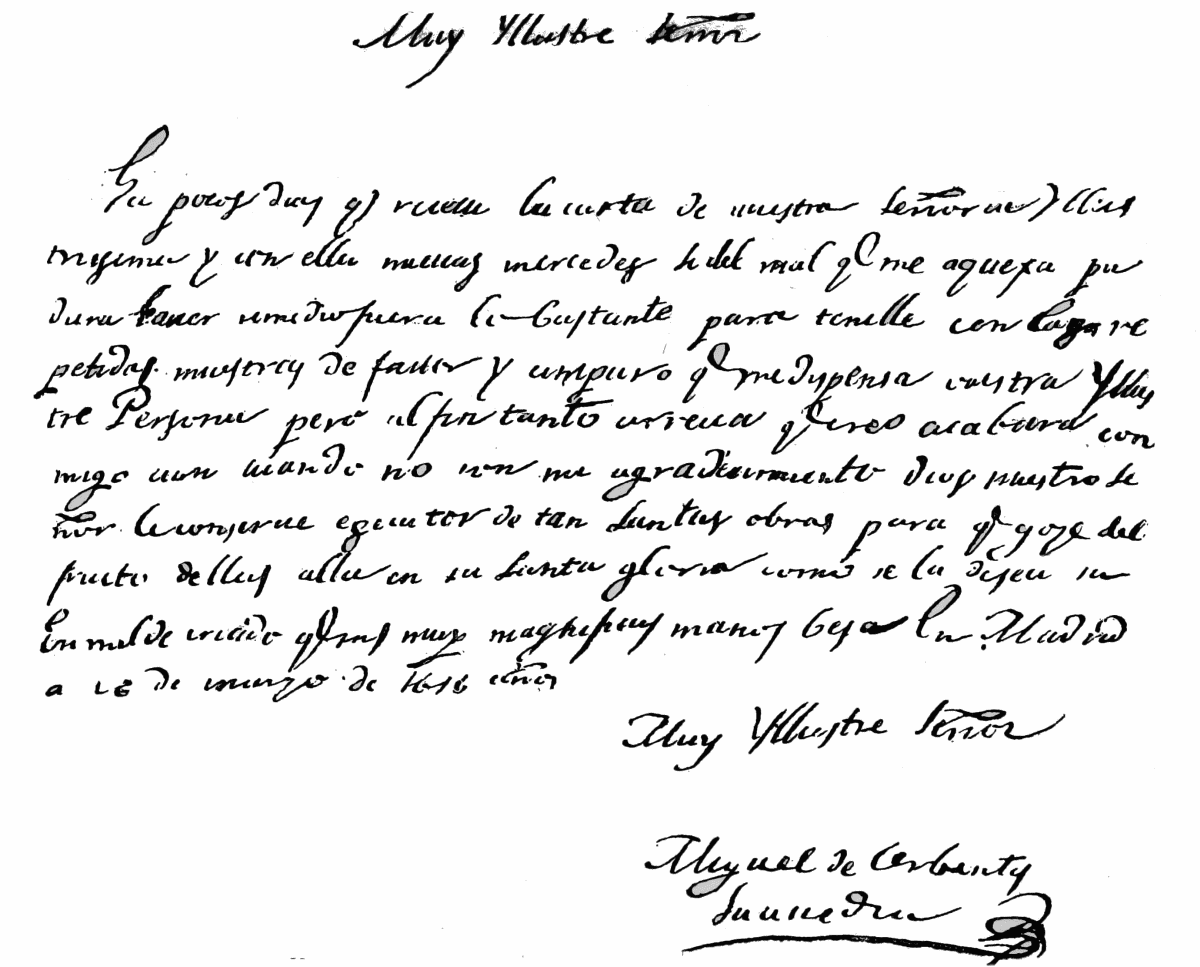 Muy Yllustre señor
Ha pocos dias q̃ reciui la carta de vuestra señoria Yllus
trisima y con ella nueuas mercedes si del mal q̃ me aquexa pu
diera hauer remedio fuera lo bastante para tenelle con las re
petidas muestras de fauor y amparo q̃ me dispensa vuestra Yllus
tre Persona pero al fin tanto arrecia q̃ creo acabara con
migo aun quando no con mi agradecimiento dios nuestro se
ñor le conserue egecutor de tan santas obras para q̃ goze del
fruto dellas alla en su santa gloria como se la desea su
humilde criado q̃ sus muy magnificas manos besa En Madrid
a 26 de marzo de 1616 años
Muy Yllustre señor
Miguel de Cerbantes
Saauedra